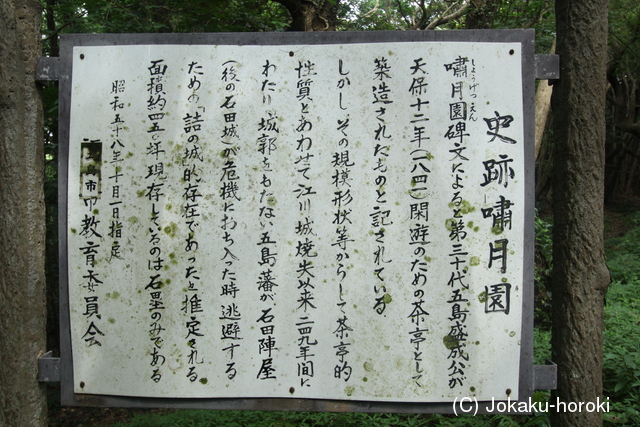 史跡 嘯月園
しょうげつえん
嘯月園碑文によると第三十代五島盛成公が
天保十二年(一八四一)閑遊のための茶亭として
築造されたものと記されている
しかし、その規模形状等からして茶亭的
性質とあわせて江川城焼失以来二四九年間に
わたり城郭をもたない五島藩が石田陣屋
(後の石田城)が危機におち入った時逃避する
ための「詰の城」的存在であったと推定される
面積約四五〇坪現存しているのは石塁のみである
昭和五十八年十月一日指定
島市
教育委員会
(C) Jokaku-horoki